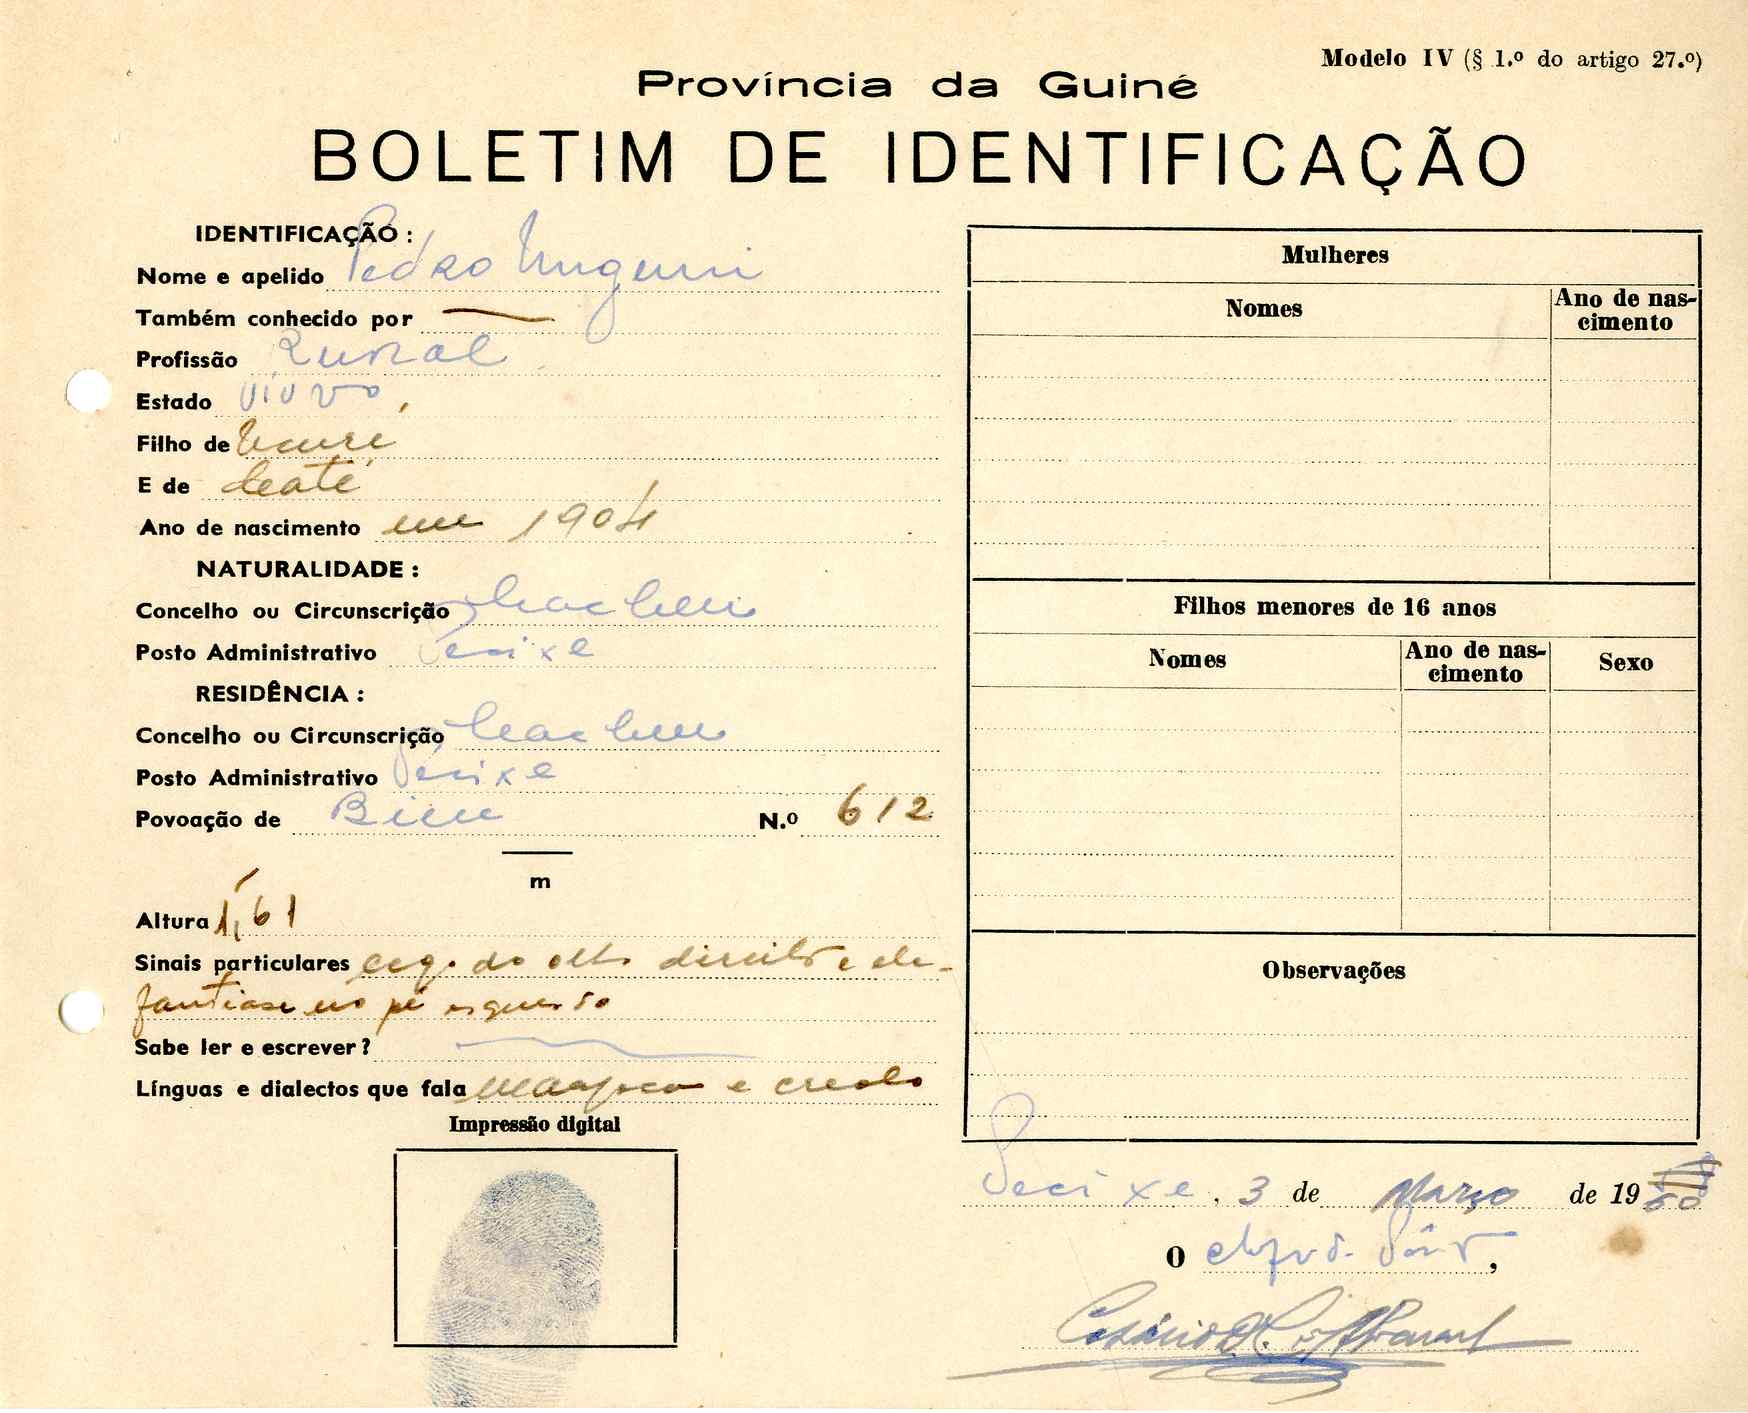 Modelo IV (§ 1.º do artigo 27.º)
Província da Guiné
BOLETIM DE IDENTIFICAÇÃO
IDENTIFICAÇÃO :
Nome e apelido Pedro
Também conhecido por —
Profissão Rural
Estado viuvo
Filho de
E de
Ano de nascimento em 1904
NATURALIDADE :
Concelho ou Circunscrição Cacheu
Posto Administrativo Pecixe
RESIDÊNCIA :
Concelho ou Circunscrição Cacheu
Posto Administrativo Pecixe
Povoação de N.º 612
m
Altura 1,61
Sinais particulares cego do olho direito e ele-
fantiase no pé esquerdo
Sabe ler e escrever?
Línguas e dialectos que fala manjaco e creolo
Impressão digital
Mulheres
Nomes
Ano de nas-
cimento
Filhos menores de 16 anos
Nomes
Ano de nas-
cimento
Sexo
Observações
Pecixe, 3 de Março de 19
O